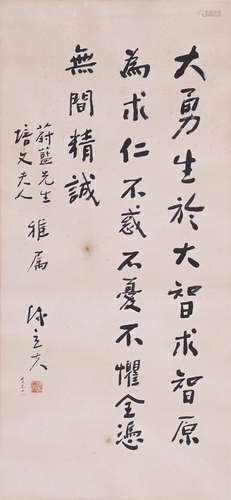 大勇生於大智求智原
為求仁不惑不憂不懼全憑
無間精誠
蔚藍先生
培文夫人
雅屬
陳立夫